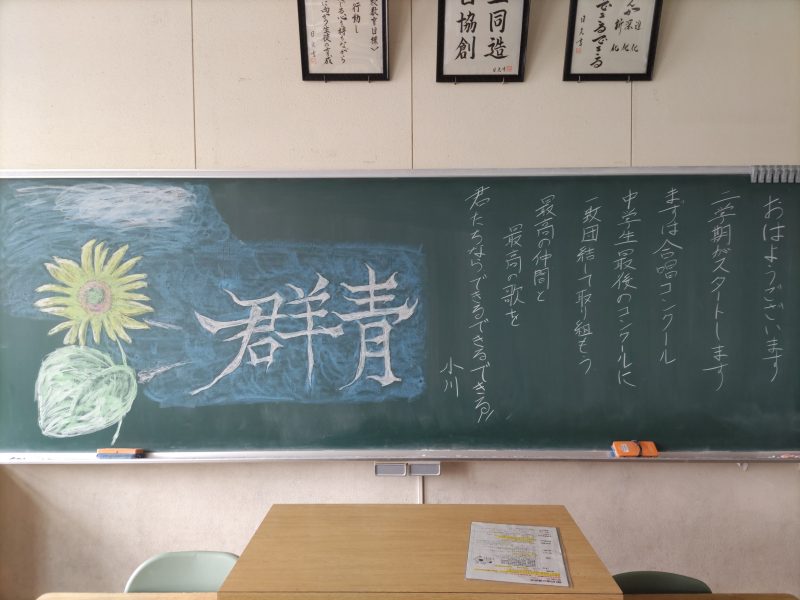 おはようございます
二学期がスタートします
まずは合唱コンクール
中学生最後のコンクールに
一致団結して取り組もう
最高の仲間と
最高の歌を
君たちならできるできるできる!!
小川
群青
進化
深化
新化
できるできる
同造
協創
教育目標》
行動し
心を持ちながら
に向かう生徒の育成